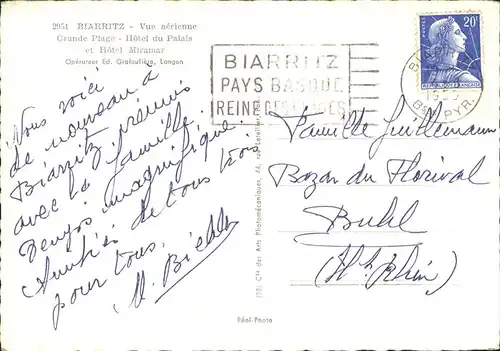 2951 BIARRITZ - Vue aérienne
Grande Plage - Hôtel du Palais
et Hôtel Miramar
Opérateur Ed. Grafouliére, Langon
BIARRITZ
PAYS BASQUE
REINE DES PLAGES
POSTES
20F
BSES PYR.
Nous voici
de nouveau à
Biarritz
avec la famille.
Temps magnifique.
Amitiés de tous trois
pour tous.
M.
Famille Guillemann
Bazar du Florival
Buhl
(Ht Rhin)
Cie des Arts Photomécaniques, 44, rue
Réal-Photo